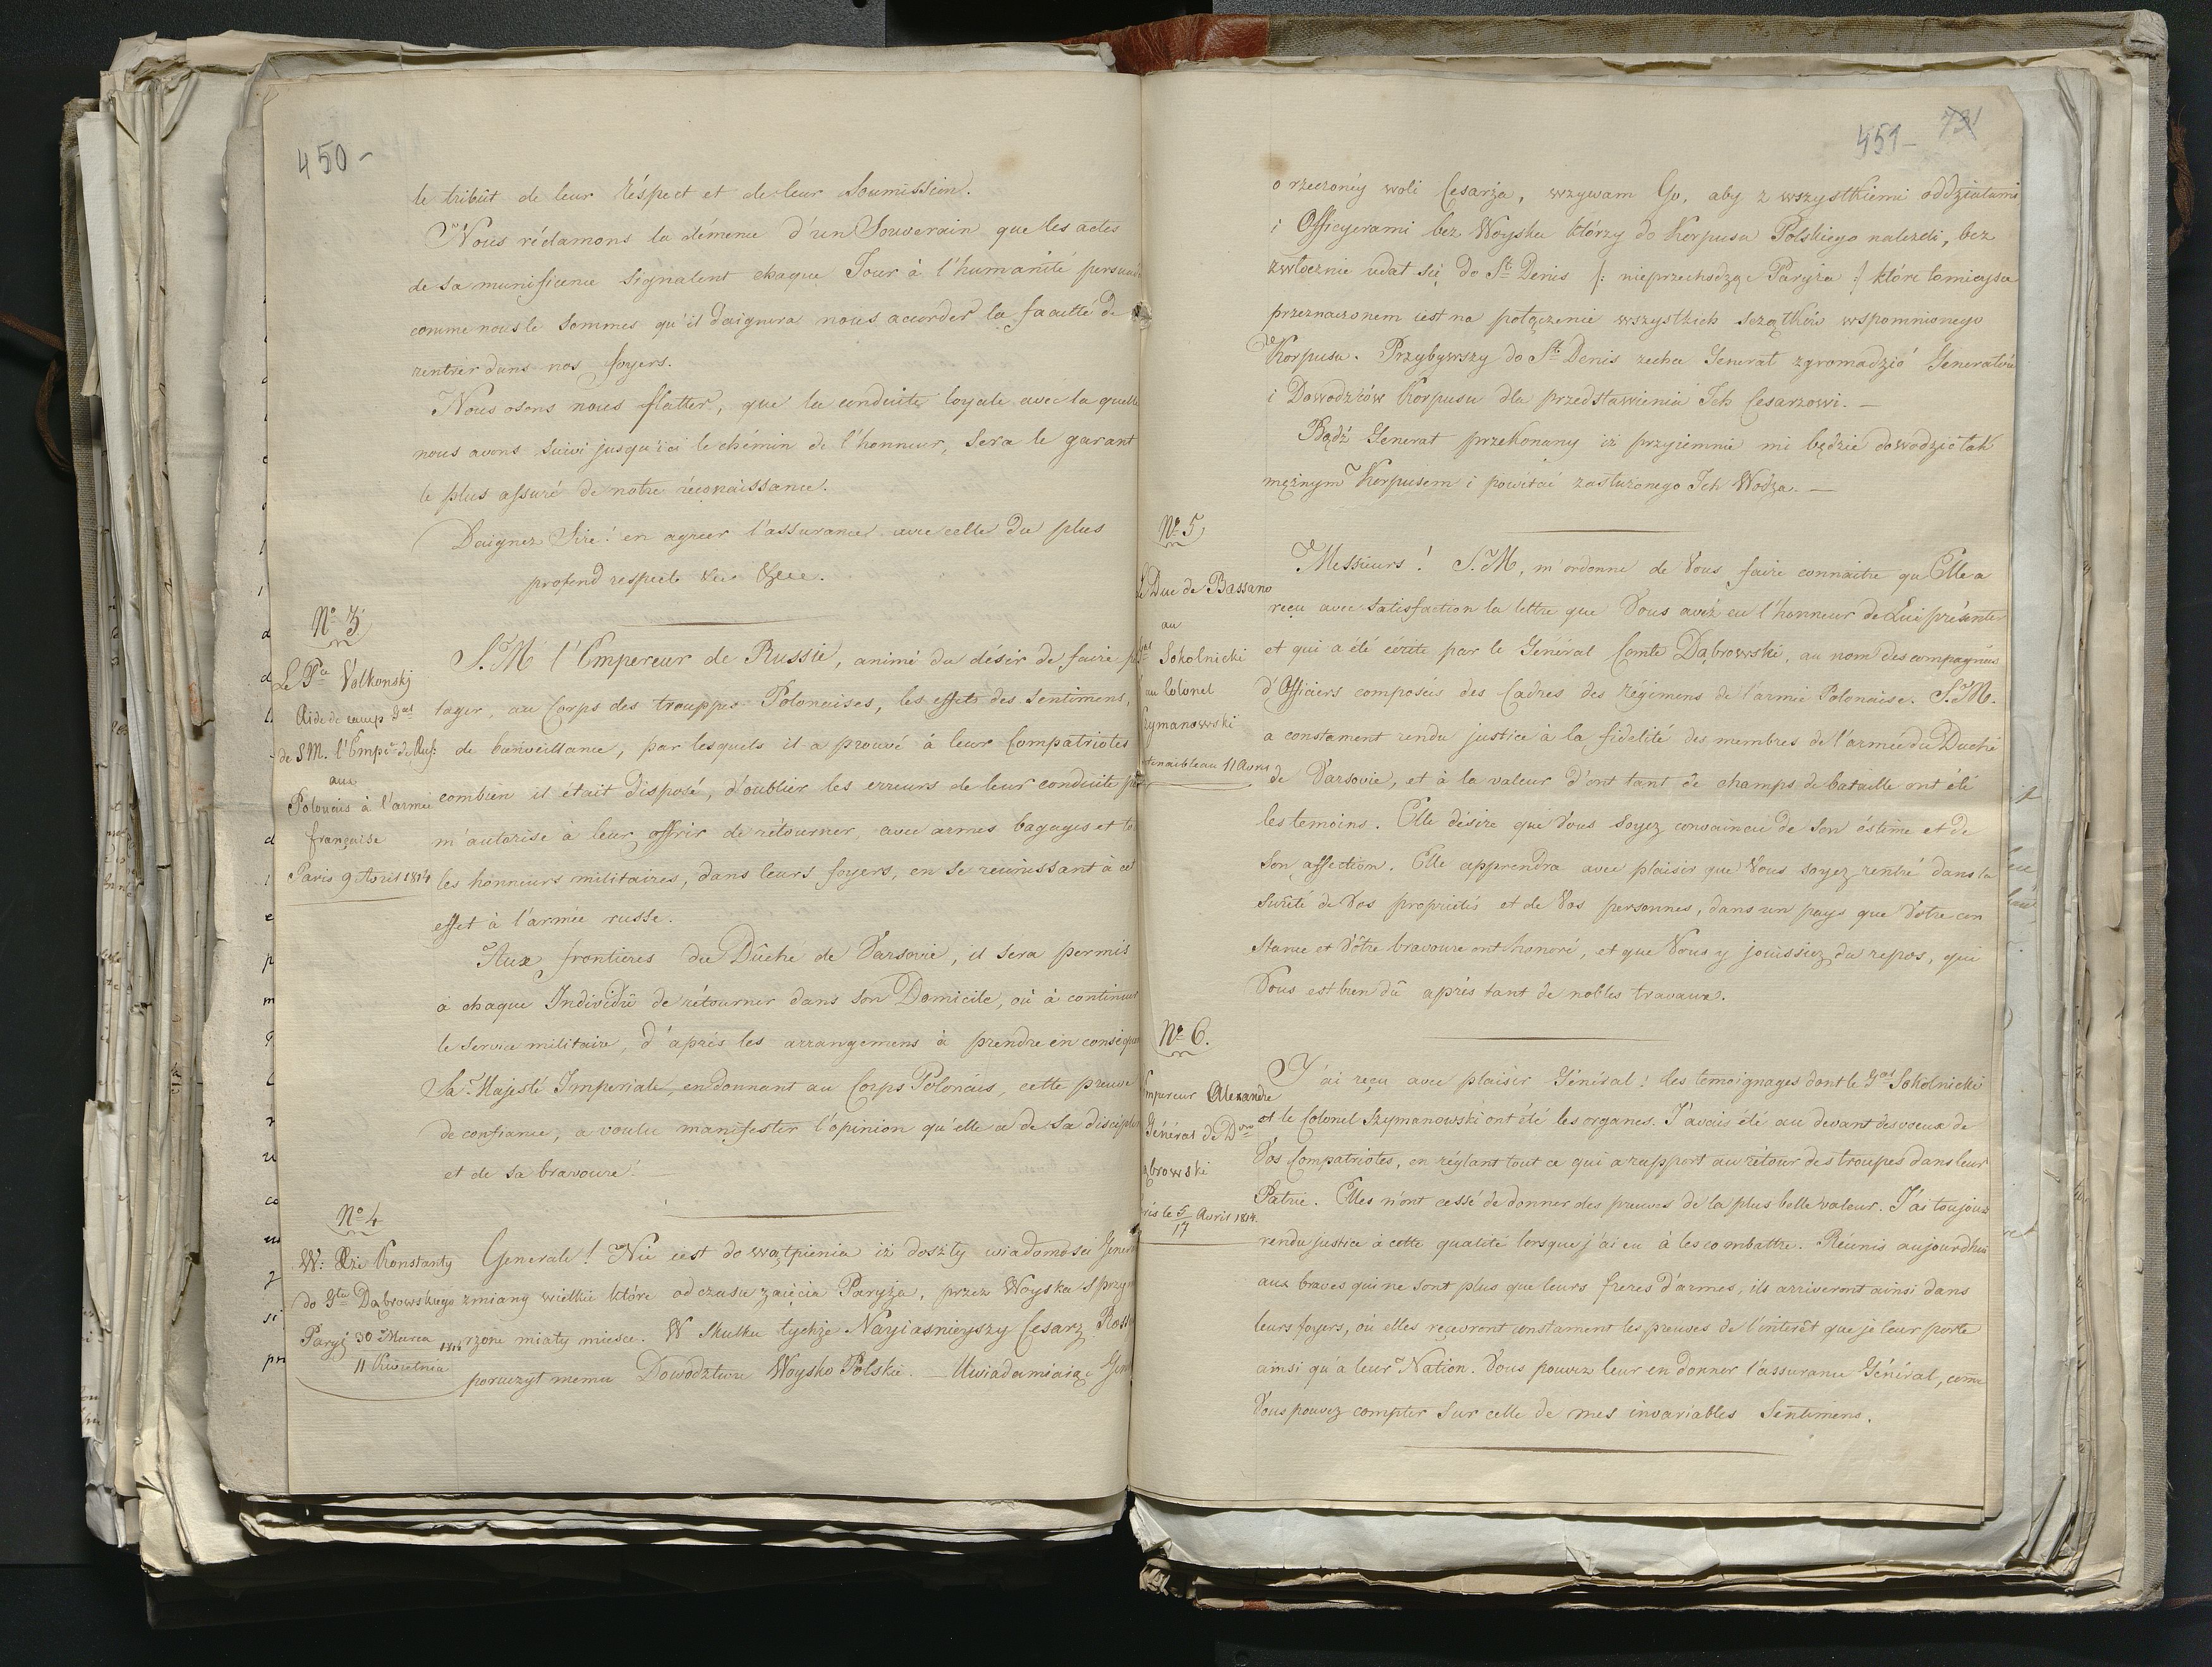 450-
le tribût de leur réspect et de leur Soumission.
Nous réclamons la clémence d'un Souverain que les actes
de sa munificence signalent chaque Jour à l'humanité
comme nous le Sommes qu'il daignera nous accorder la faculté de
rentrer dans nos foyers.
Nous osons nous flatter, que la conduite loyale avec la quelle
nous avons suivi jusqu'ici le chémin de l'honneur, sera le garant
le plus assuré de notre réconaissance.
Daignez Sire! en agréer l'assurance avec celle du plus
profond respect
No 3
Le Pce Volkonskj
Aide de camp Gal
de S.M. l'Emper: de Rus:
aux
Polonais à l'armée
française
Paris 9 Avril 1814
S. M l'Empereur de Russie, animé du désir de faire
tager, au Corps des trouppes Polonaises, les effets des Sentimens,
de bienveillance, par lesquels il a prouvé à leur Compatriotes
combien il était disposé, d'oublier les erreurs de leur conduite
m'autorise à leur offrir de rétourner, avec armes bagages et
les honneurs militaires, dans leurs foyers, en se réunissant à cet
effet à l'armée russe.
Aux frontieres du Dûché de Varsovie, il sera permis
à chaque Individû de rétourner dans son Domicile, où à continuer
le Service militaire, d'après les arrangemens à prendre en
Sa Majesté Imperiale, en donnant au Corps Polonais, cette preuve
de confiance, a voulu manifester l'opinion qu'elle a de sa
et de sa bravoure
No 4
W: Xże Konstanty
do Gła Dąbrowskiego
Paryż 30 Marca
11 Kwietnia
Generale! Nie iest do wątpienia iż doszły wiadomości
zmiany wielkie które od czasu zaięcia Paryża, przez Woyska
rzone miały miesce. W Skutku tychże Nayiaśnieyszy Cesarz
poruczył memu Dowodztwu Woysko Polskie. — Uwiadamiaiąc
451-
731
o rzeczonéy woli Cesarza, wzywam Go, aby z wszystkiemi oddziałami
i Officyerami bez Woyska którzy do Korpusu Polskiego należeli, bez
zwłocznie udał się do St Denis /: nieprzechodząc Paryża :/ które to mieysce
przeznaczonem iest na połączenie wszystkich szczątków wspomnionego
Korpusu. Przybywszy do St Denis zechce Generał zgromadzić Generałów
i Dowodzców Korpusu dla przedstawienia Ich Cesarzowi. —
Bądź Generał przekonany iż przyiemnie mi będzie dowodzić tak
mężnym Korpusem i powitać zasłużonego Ich Wodza. —
No 5
Le Duc de Bassano
au
Sokolnicki
au Colonel
zymanowski
tenaibleau 11 Avril
Messieurs! S. M, m'ordonne de Vous faire connaitre qu'Elle a
reçu avec satisfaction la lettre que Vous avez eu l'honneur de Lui présenter
et qui a été écrite par le Général Comte Dąbrowski, au nom des compagnies
d'Officiers composées des Cadres des régimens de l'armée Polonaise. S. M.
a constament rendu justice à la fidelité des membres de l'armée du Duché
de Varsovie, et à la valeur d'ont tant de champs de bataille ont été
les temoins. Elle désire que Vous soyez convaincu de Son éstime et de
Son affection. Elle apprendra avec plaisir que Vous soyez rentré dans la
Sureté de Vos proprietés et de Vos personnes, dans un pays que Votre con
stance et Vôtre bravoure ont honoré, et que Vous y jouissiez du repos, qui
Vous est bien dû après tant de nobles travaux.
No 6.
mpereur Alexandre
Général de Don
ąbrowski
ris le 5/17 Avril 1814.
J'ai reçu avec plaisir Général! les temoignages dont le Gal Sokolnicki
et le Colonel Szymanowski ont été les organes. J'avais été au devant des voeux de
Vos Compatriotes, en réglant tout ce qui a rapport au rétour des troupes dans leur
Patrie. Elles n'ont cessé de donner des preuves de la plus belle valeur. J'ai toujours
rendu justice à cette qualité lorsque j'ai eu à les combattre. Réunis aujourdhui
aux braves qui ne sont plus que leurs freres d'armes, ils arriveront ainsi dans
leurs foyers, où elles reçevront constament les preuves de l'interêt que je leur porte
ainsi qu'à leur Nation. Vous pouvez leur en donner l'assurance Général, come
Vous pouvez compter sur celle de mes invariables Sentimens.